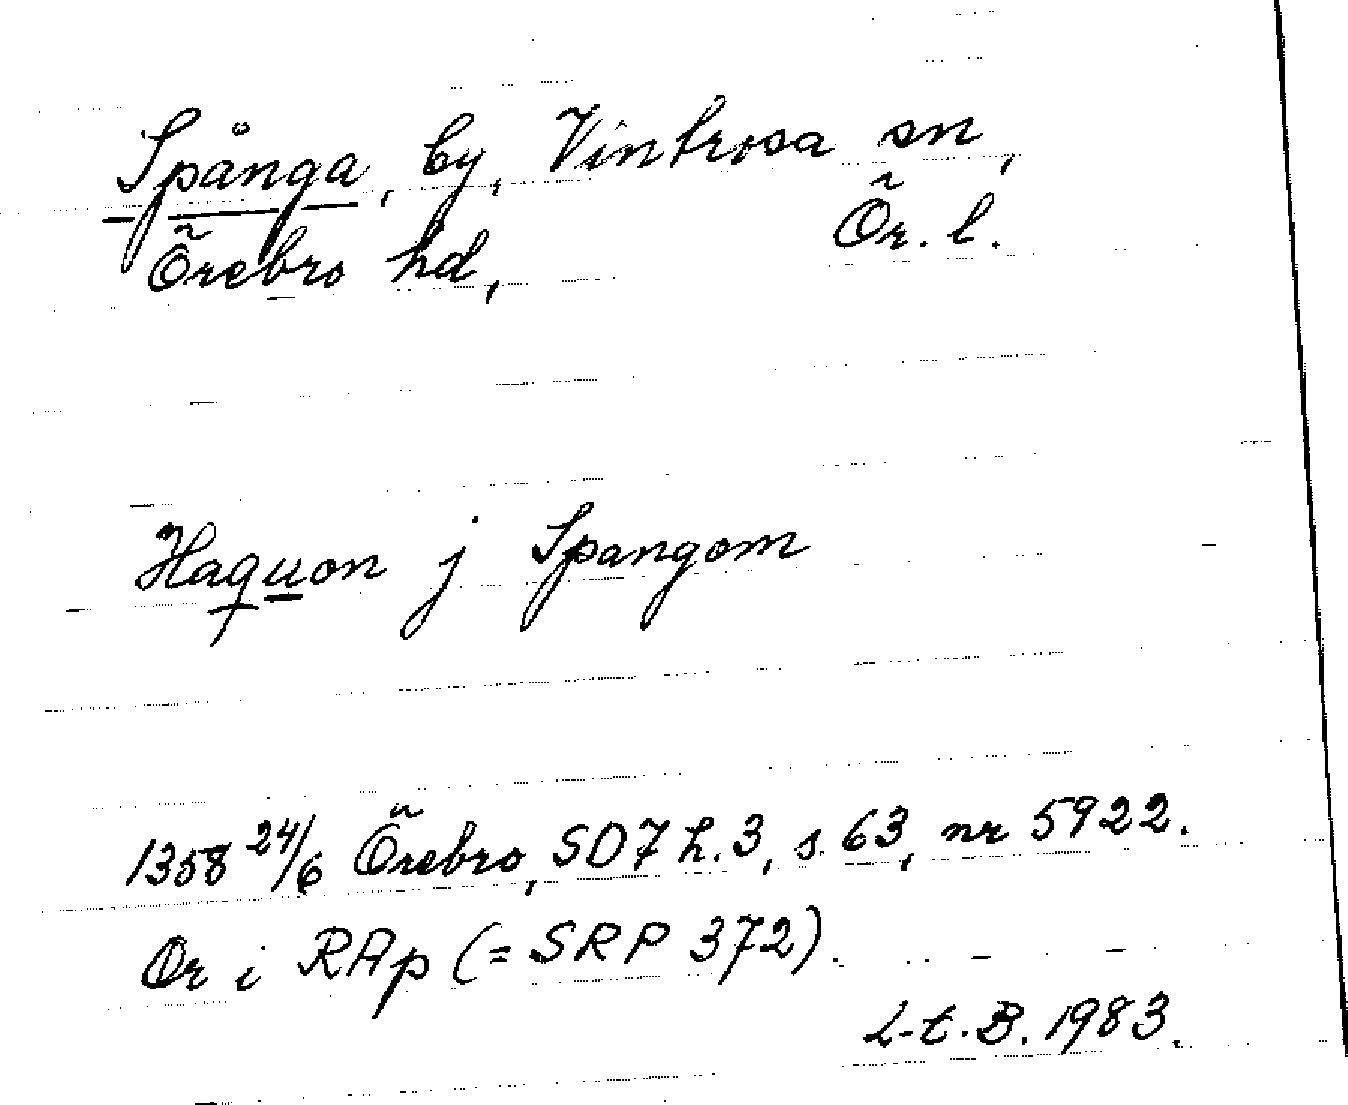 Spånga, by, Vintrosa sn,
Örebro hd, Ör. l.
Haquon j Spangom
1358 24/6 Örebro, SD7 h. 3, s. 63, nr 5922.
Or i RAp (= SRP 372).
L-t. B. 1983.